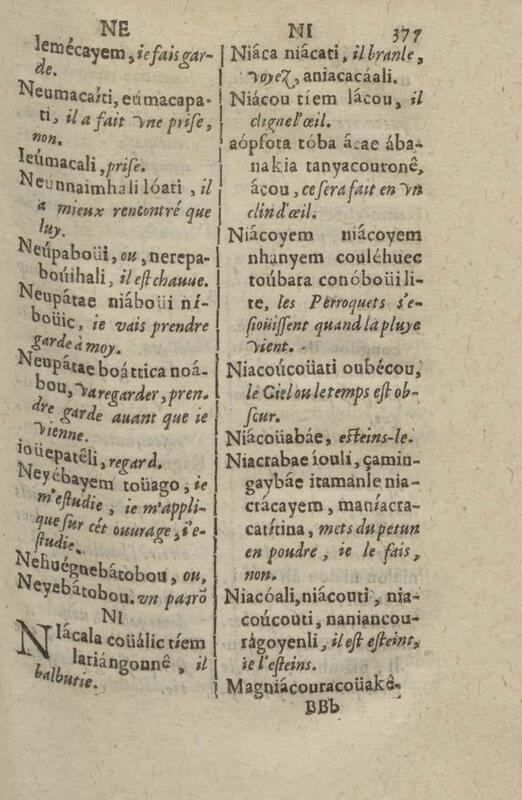 NE
lemécayem, ie fais gar-
de.
Neumacaíti, eúmacapa-
ti, il a fait vne prise,
non.
Ieúmacali, prise.
Neúnnaimhali lóati, il
a mieux rencontré que
luy.
Neúpaboüi, ou, nerepa-
boüihali, il est chauue.
Neupátae niáboüi ní-
boüic, ie vais prendre
garde à moy.
Neupátae boáttica noá-
bou, va regarder, pren-
dre garde auant que ie
vienne.
ioüepatêli, regard.
Neyébayem toüago, ie
m'estudie, ie m'appli-
que sur cét ouurage, i'e-
studie.
Nehuégnebátobou, ou,
Neyebátobou. vn patrõ
NI
NIácala coüálic tíem
lariángonnê, il
balbutie.
NI 377
Niáca niácati, il branle,
voyez, aniacacáali.
Niácou tíem lácou, il
cligne l'œil.
aópfota tóba ácae ába-
nakia tanyacouronê,
ácou, ce sera fait en vn
clin d'œil.
Niácoyem niácoyem
nhanyem couléhuec
toúbara conóboüi li-
te, les Perroquets s'e-
sioüissent quand la pluye
vient.
Niacoúcoüati oubécou,
le Ciel ou le temps est ob-
scur.
Niácoüabáe, esteins-le.
Niacrabae íouli, çamin-
gaybáe itamánle nia-
crácayem, maníacra-
catítina, mets du petun
en poudre, ie le fais,
non.
Niacóali, niácouti, nia-
coúcouti, naniancou-
rágoyenli, il est esteint,
ie l'esteins.
Magniácouracoüakê-
BBb